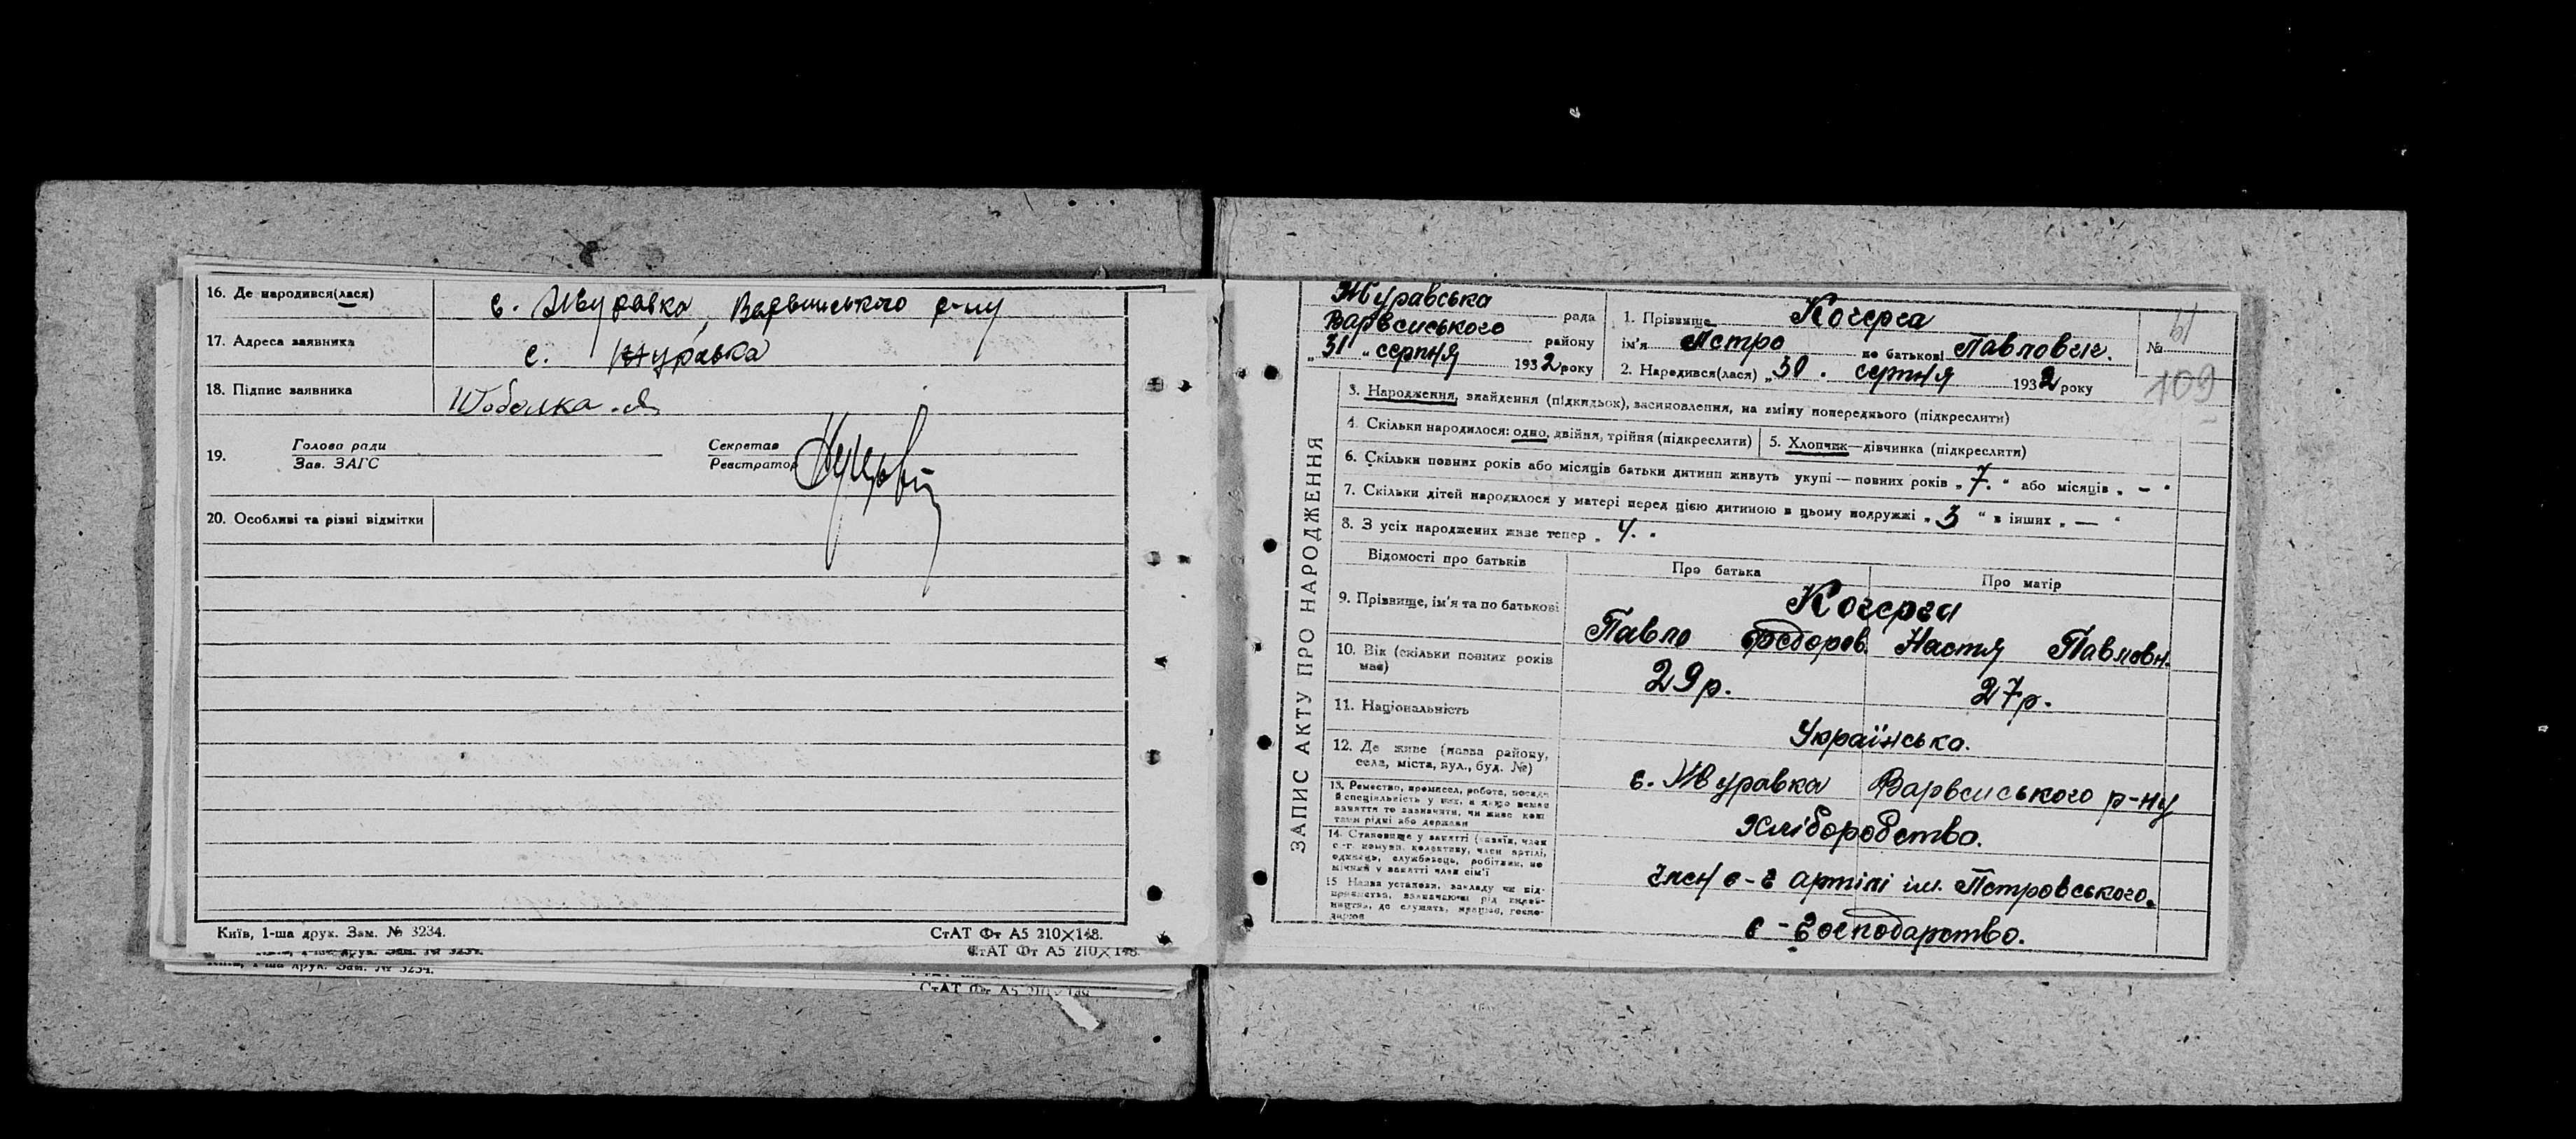 16. Де народився(лася) с. Журавка, Варвинського р-ну
17. Адреса заявника с. Журавка
18. Підпис заявника Шоболка
19. Голова ради Секретар
Зав. ЗАГС Реєстратор
20. Особливі та різні відмітки
Київ, 1-ша друк. Зам. № 3234. СтАТ Фт А5 210×148.
СтАТ Фт А5 210×148.
Київ, 1-ша друк. Зам. № 3234.
СтАТ Фт А5 210×148
ЗАПИС АКТУ ПРО НАРОДЖЕННЯ
Журавська рада
Варвенського району
„31“ серпня 1932 року
1. Прізвище Кочерга
ім'я Петро по батькові Павлович.
2. Народився(лася) „30. серпня 1932 року
№ 61
109
3. Народження, знайдення (підкидьок), засиновлення, на зміну попереднього (підкреслити)
4. Скільки народилося: одно, двійня, трійня (підкреслити) 5. Хлопчик—дівчинка (підкреслити)
6. Скільки повних років або місяців батьки дитини живуть укупі — повних років „7.“ або місяців „—“
7. Скільки дітей народилося у матері перед цією дитиною в цьому подружжі „3“ в інших „—“
8. З усіх народжених живе тепер „4.“
Відомості про батьків Про батька Про матір
Кочерга
9. Прізвище, ім'я та по батькові Павло Федоров. Настя Павловн.
10. Вік (скільки повних років має) 29р. 27р.
11. Національність Українська.
12. Де живе (назва району, села, міста, вул., буд. №) с. Журавка Варвенського р-ну
13. Ремество, промисел, робота, посада й спеціяльність у них, а якщо немає заняття то зазначити, чи живе коштами рідні або держави Хліборобство.
14. Становище у занятті (хазяїн, член с.-г. комуни, колективу, член артілі, одинець, службовець, робітник, помічний у занятті член сім'ї член с-г артілі ім. Петровського.
15. Назва установи, закладу чи підприємства, зазначаючи рід виробництва, де служить, працює, господарює с-господарство.